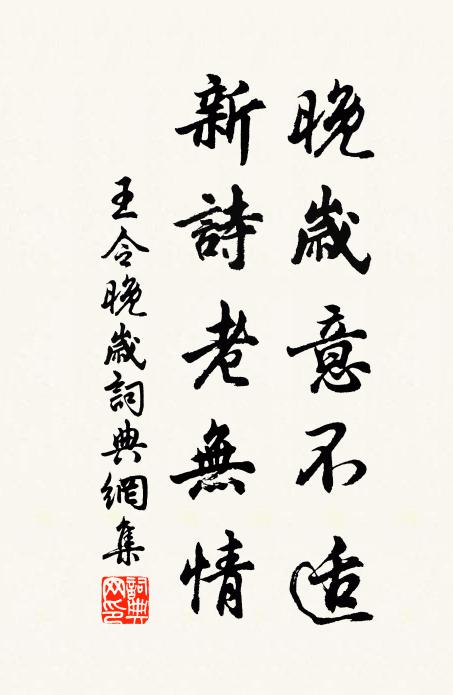 晚歲意不适
新詩老無情
王令晚歲詞典網集
詞典
网印